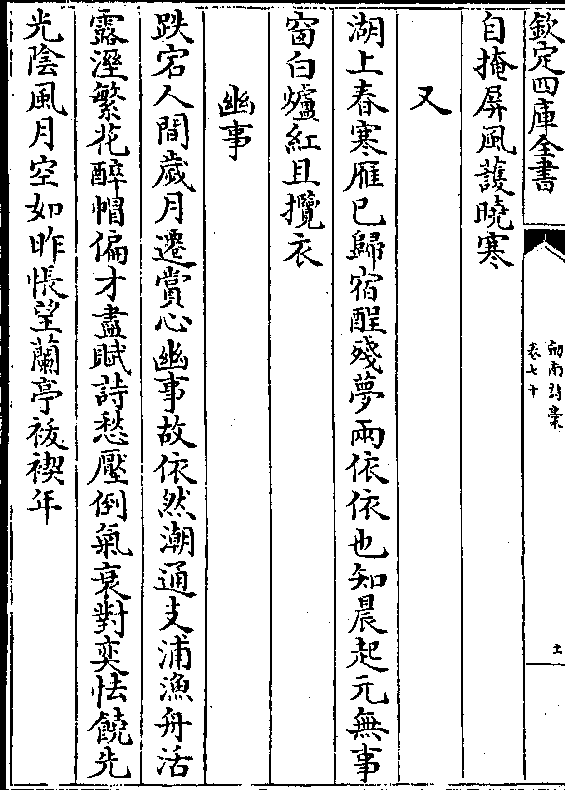 欽定四庫全書
劍南詩稾
卷七十
十一
自掩屏風護曉寒
又
湖上春寒雁已歸宿酲殘夢兩依依也知晨起元無事
窗白爐紅且攬衣
幽事
跌宕人間歲月遷賞心幽事故依然潮通支浦漁舟活
露溼繁花醉帽偏才盡賦詩愁壓倒氣衰對奕怯饒先
光陰風月空如昨悵望蘭亭袚禊年